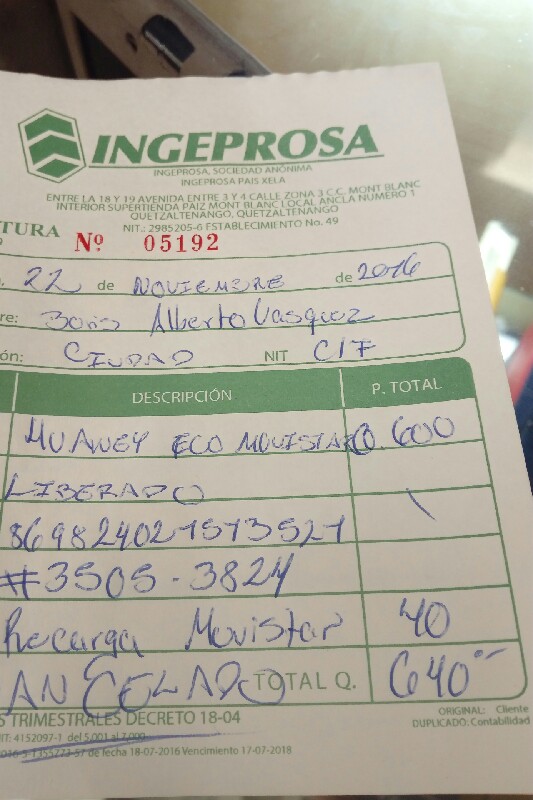 INGEPROSA
INGEPROSA, SOCIEDAD ANÓNIMA
INGEPROSA PAIS XELA
ENTRE LA 18 Y 19 AVENIDA ENTRE 3 Y 4 CALLE ZONA 3 C.C. MONT BLANC
INTERIOR SUPERTIENDA PAIZ MONT BLANC LOCAL ANCLA NUMERO 1
QUETZALTENANGO, QUETZALTENANGO
NIT.: 2985205-6 ESTABLECIMIENTO No. 49
TURA Nº 05192
22 de NOVIEMBRE de 2016
re: Boris Alberto Vasquez
ón: CIUDAD NIT C/F
DESCRIPCIÓN P. TOTAL
HUAWEY ECO MOVISTAR Q. 600
LIBERADO
869824021573521
#3505-3824
Recarga Movistar 40
ANCELADO TOTAL Q. 640
S TRIMESTRALES DECRETO 18-04
ORIGINAL: Cliente
DUPLICADO: Contabilidad
IT: 4152097-1 del 5,001 al 7,000
de fecha 18-07-2016 Vencimiento 17-07-2018